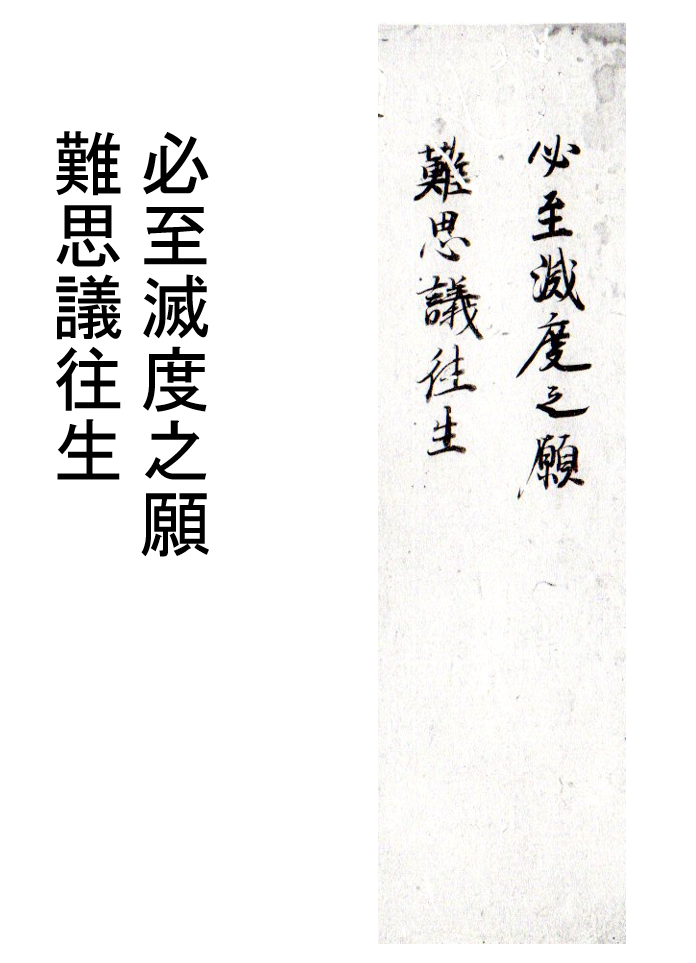 必至滅度之願
難思議往生
必至滅度之願
難思議往生